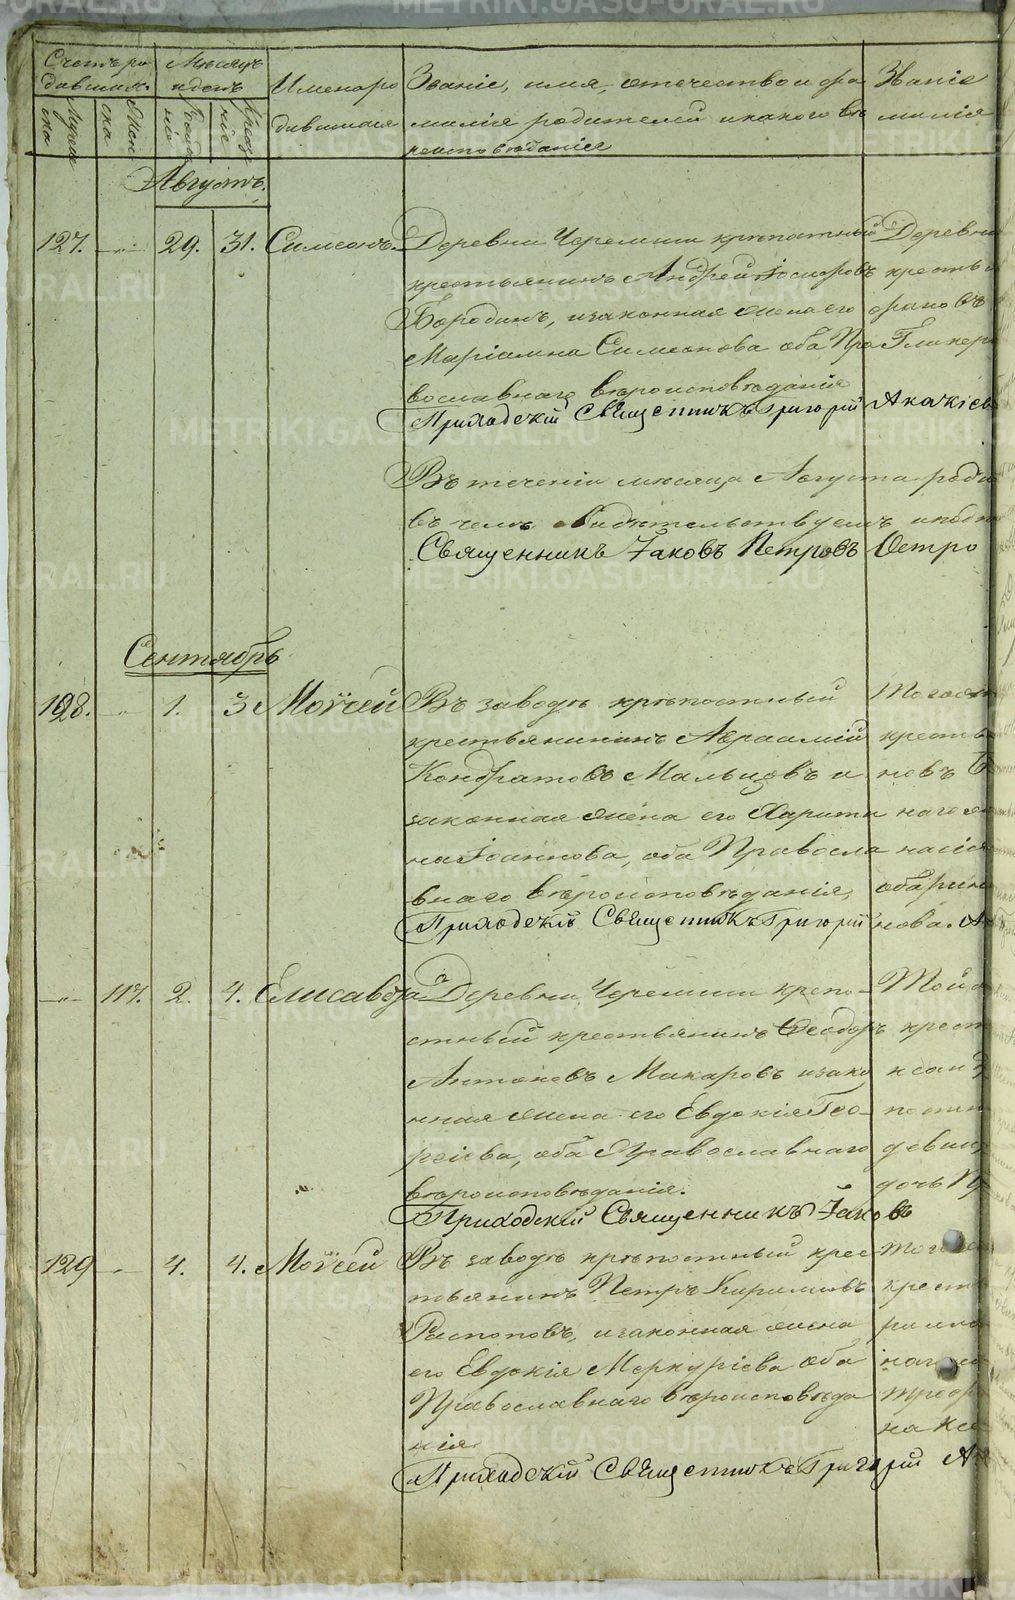 Счетъ ро
дивших.
Мѣсяцъ
и день
Имена ро
дившихся
Званіе, имя, отечество и фа
милія родителей и какого вѣ
роисповѣданія
Званіе
милія
Муже
ска
Жен
ска
Рожде
нія
Креще
ніе
Августъ.
127. 29. 31. Симеонъ. Деревни Черемши крѣпостный Деревни
крестьянинъ Андрей крестья
Бородинъ, и законная жена его
Маріамна Симеонова оба Пра Гликер
вославнаго вѣроисповѣданія
Приходскій Священникъ Григорій Акакіев
Въ теченіи мѣсяца Августа роди
въ чемъ свидѣтельствуемъ
Священникъ Іаковъ Петровъ Остро
Сентябрь
128. 1. 3 Моѵсей Въ заводѣ крѣпостный Того
крестьянинъ Авраамій кресть
Кондратовъ Мальцовъ и новъ
законная жена его Харити наго
на Іоаннова, оба Правосла
внаго вѣроисповѣданія,
Приходскій Священникъ Григорій нова.
117. 2. 4. Елисавета Деревни Черемши крепо- Той
стный крестьянинъ Ѳеодоръ крест
Антоновъ Макаровъ и зако ксан
нная жена его Евдокія Гео-
ргіева, оба Православнаго девиц
вѣроисповѣданія. дочь
Приходскій Священникъ Іаковъ
129 4. 4. Моѵсей Въ заводѣ крѣпостный крес-
тьянинъ Петръ Каримовъ крест
Распоповъ, и законная жена
его Евдокія Меркуріева оба
Православнаго вѣроисповѣда
нія
Приходскій Священникъ Григорій
METRIKI.GASO-URAL.RU